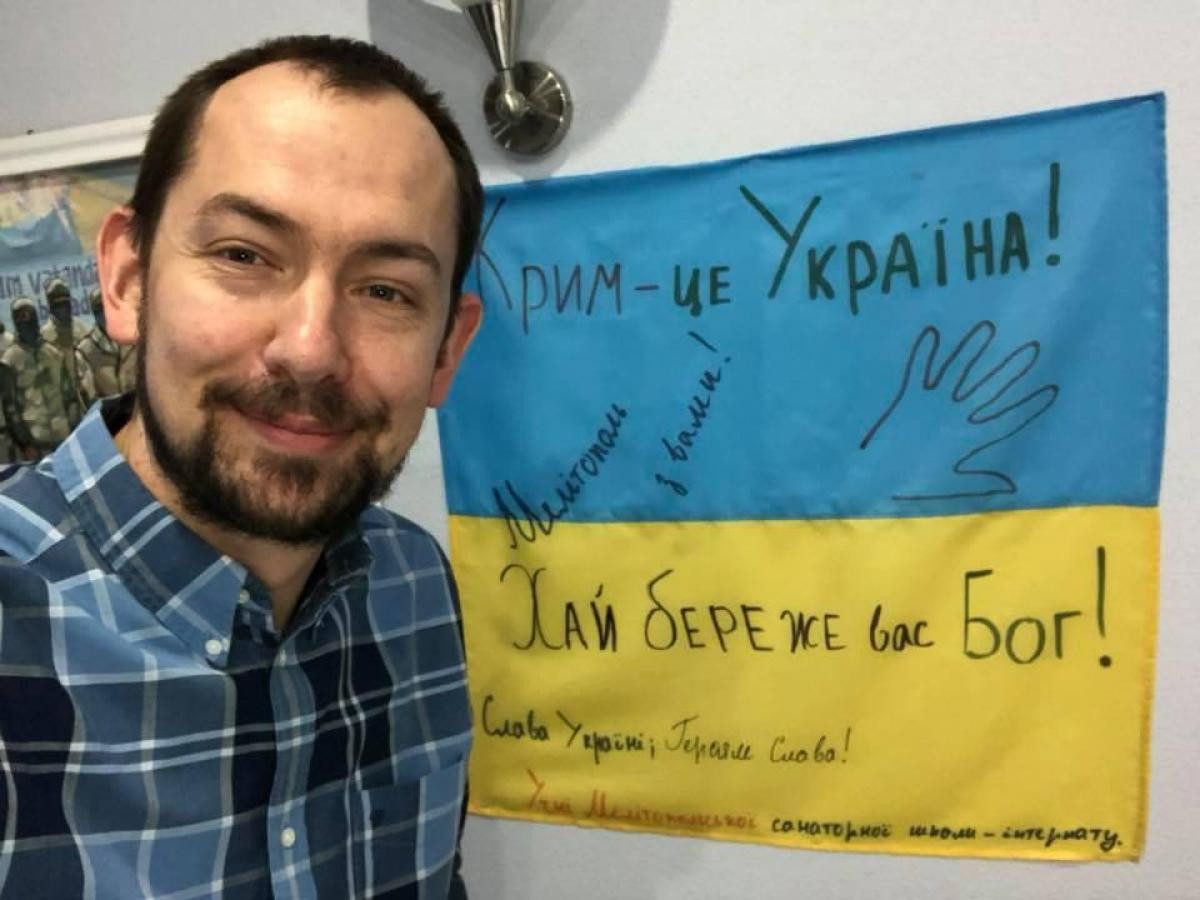 Крим - це Україна!
Мелітополь
з вами!
Хай береже вас Бог!
Слава Україні; Героям Слава!
Учні Мелітопольської санаторної школи-інтернату.